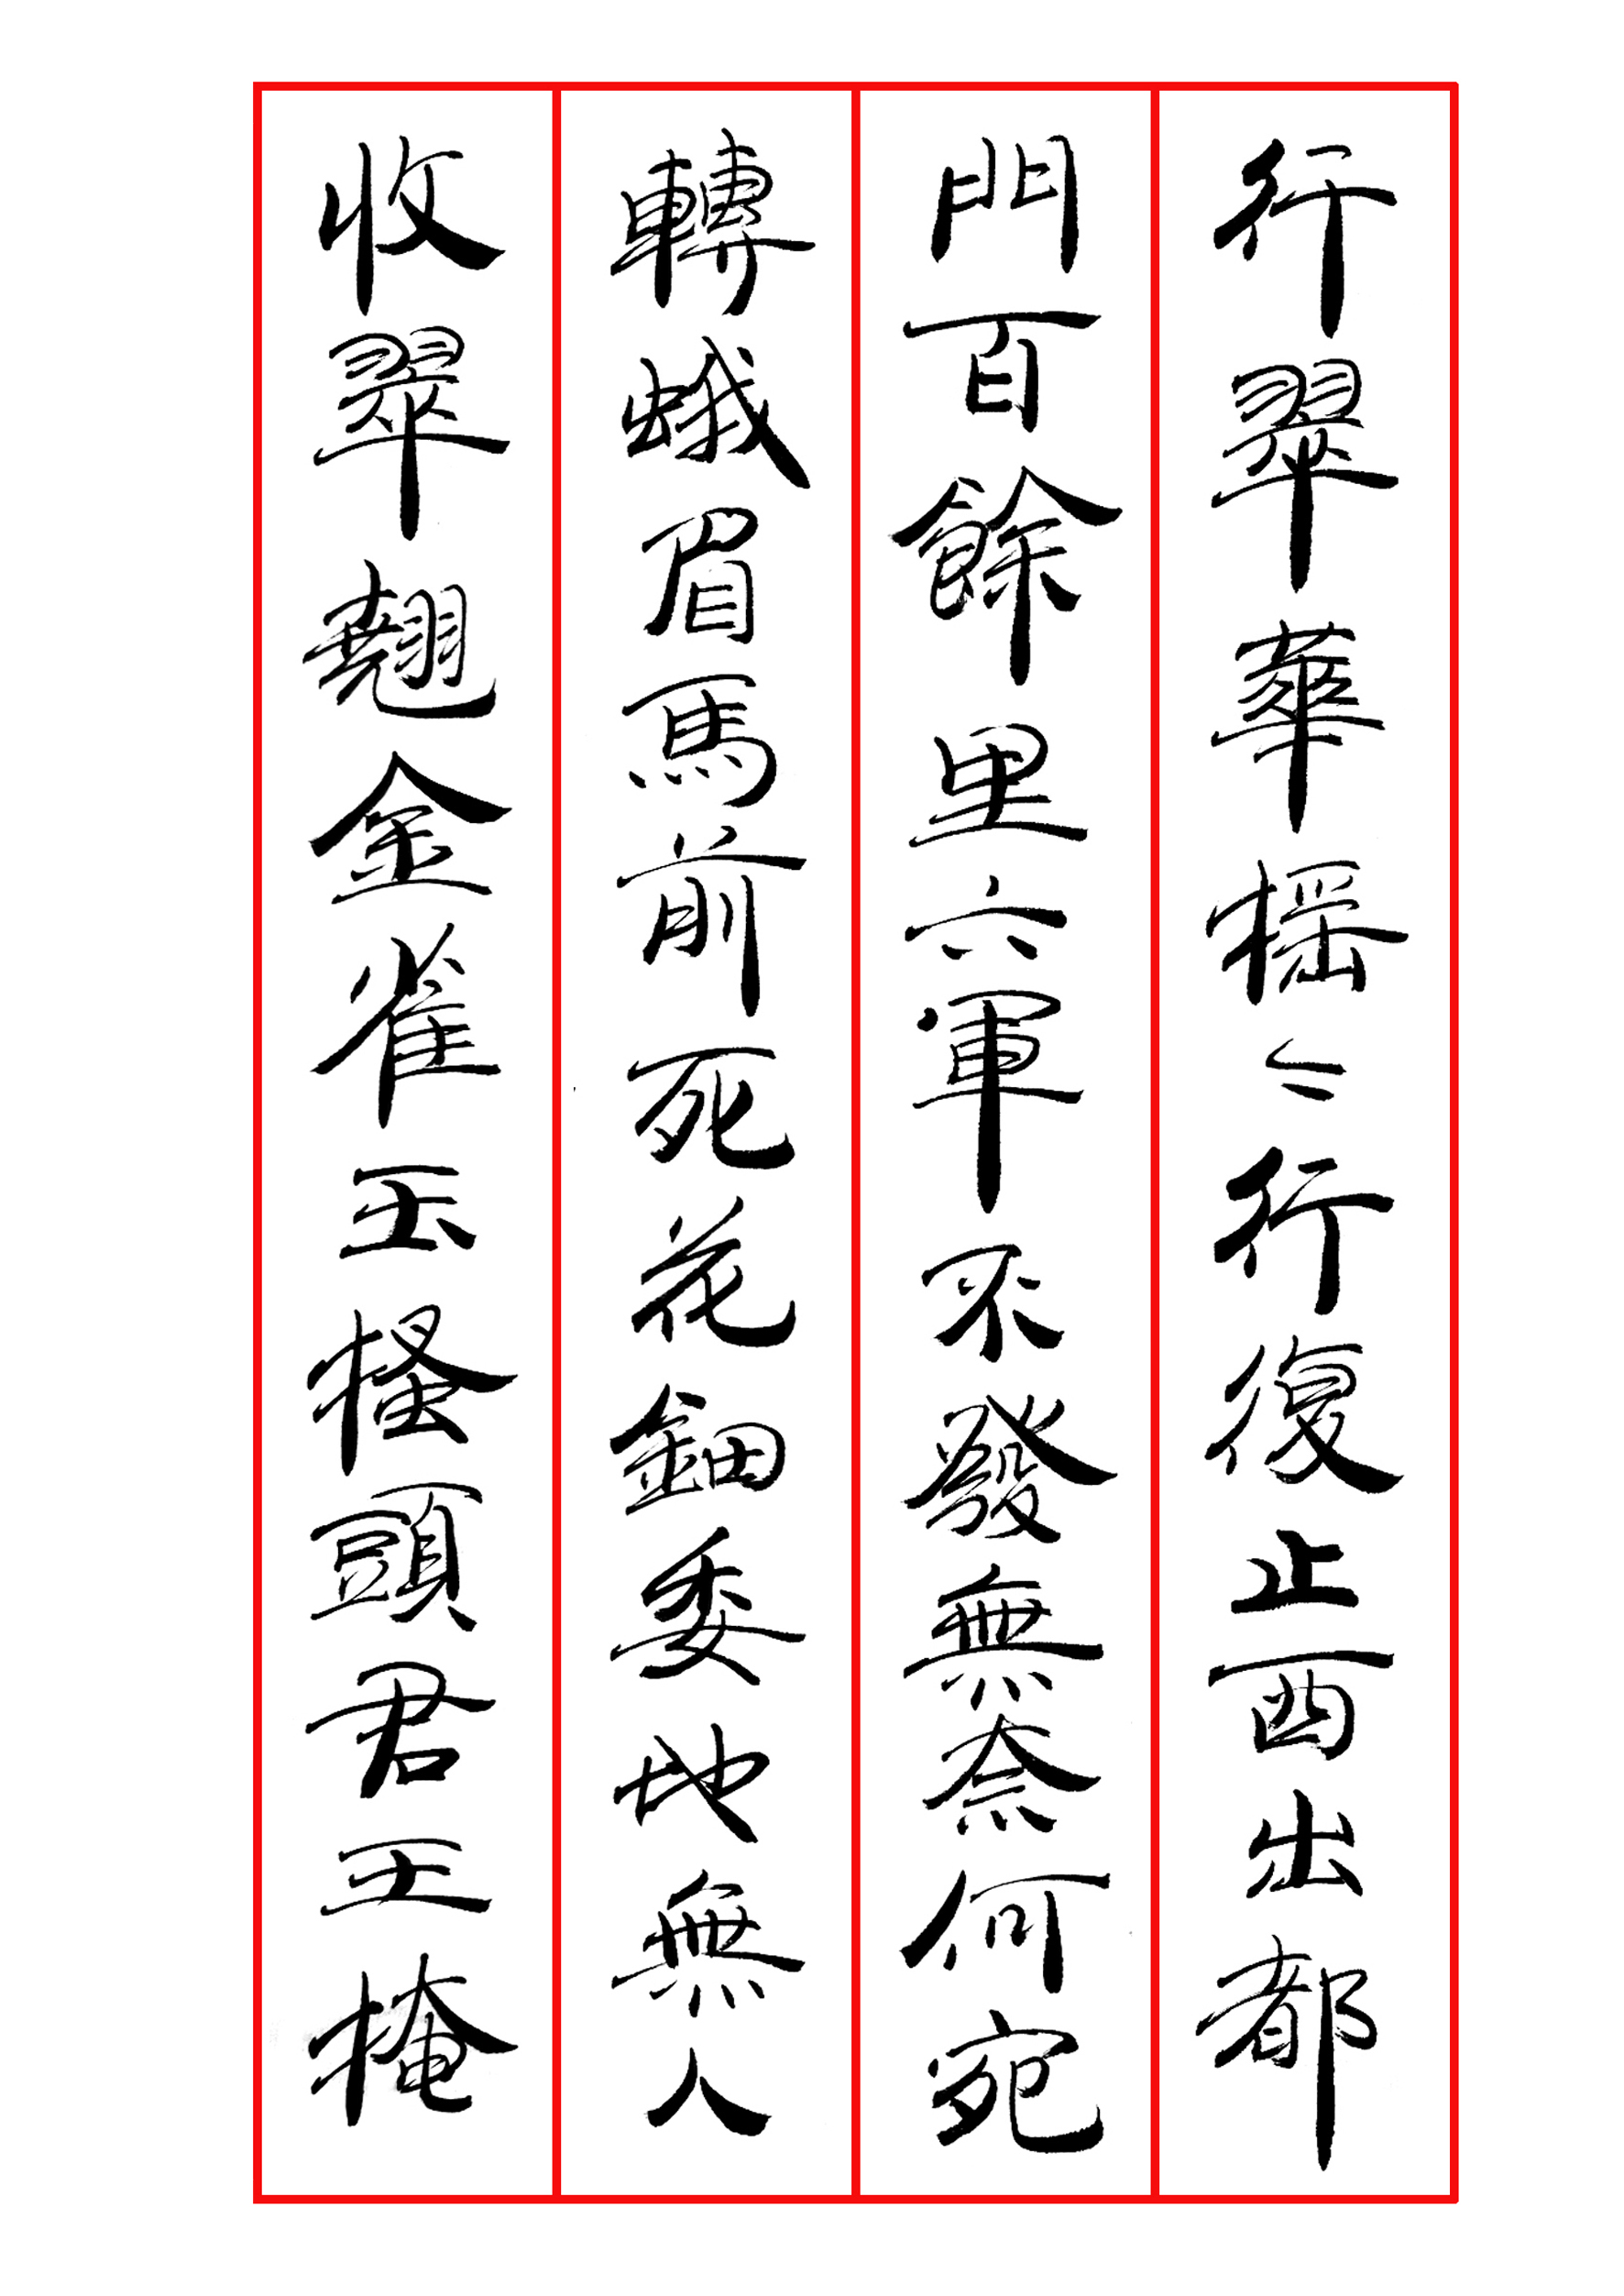 行翠華摇〻行復止西出都
門百餘里六軍不發無奈何宛
轉蛾眉馬前死花鈿委地無人
收翠翹金雀玉搔頭君王掩